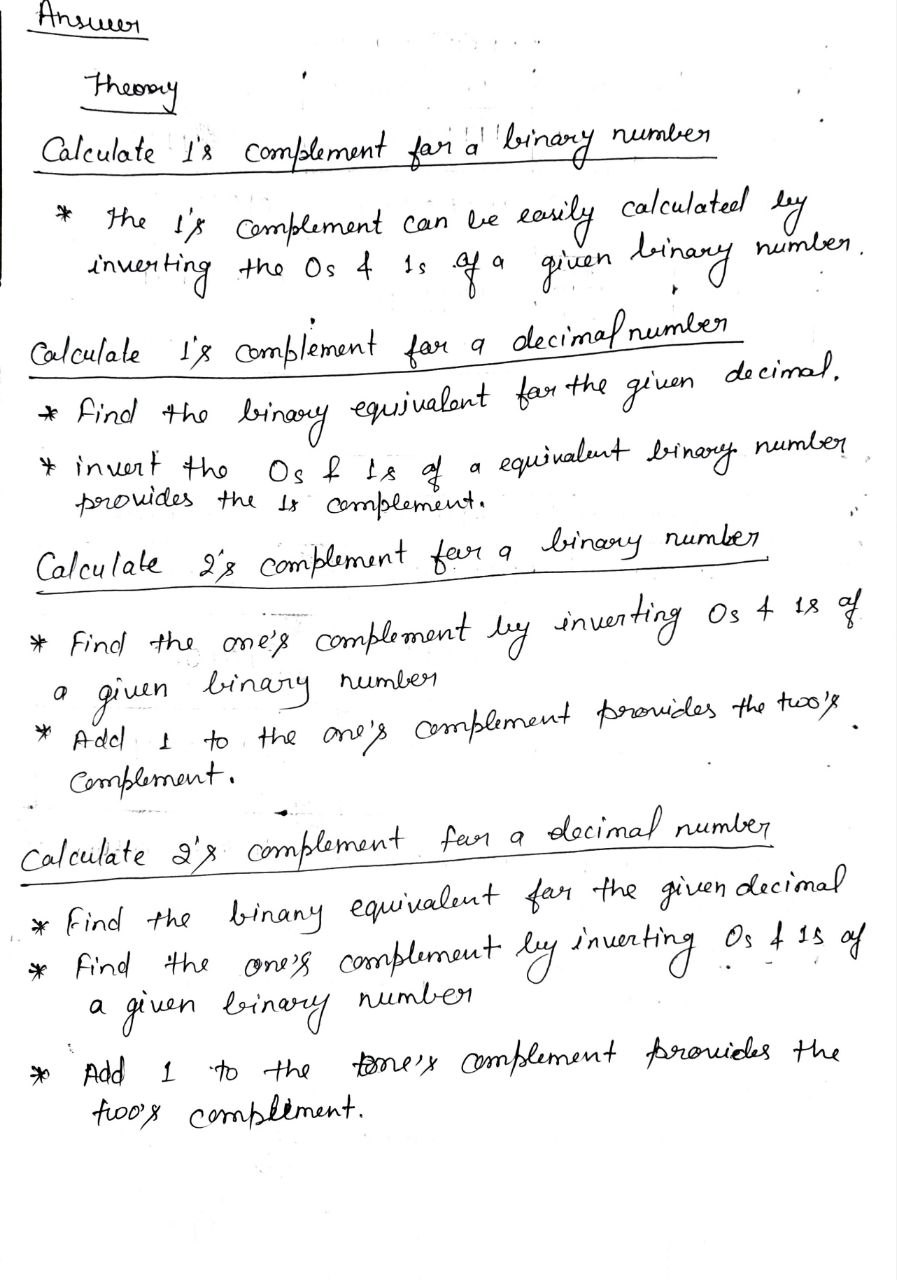 Answer
Theory
Calculate 1's complement for a binary number
* The 1's complement can be easily calculated by
inverting the 0s & 1s of a given binary number.
Calculate 1's complement for a decimal number
* Find the binary equivalent for the given decimal.
* invert the 0s & 1s of a equivalent binary number
provides the 1s complement.
Calculate 2's complement for a binary number
* Find the one's complement by inverting 0s & 1s of
a given binary number
* Add 1 to the one's complement provides the two's
complement.
Calculate 2's complement for a decimal number
* Find the binary equivalent for the given decimal
* Find the one's complement by inverting 0s & 1s of
a given binary number
* Add 1 to the one's complement provides the
two's complement.